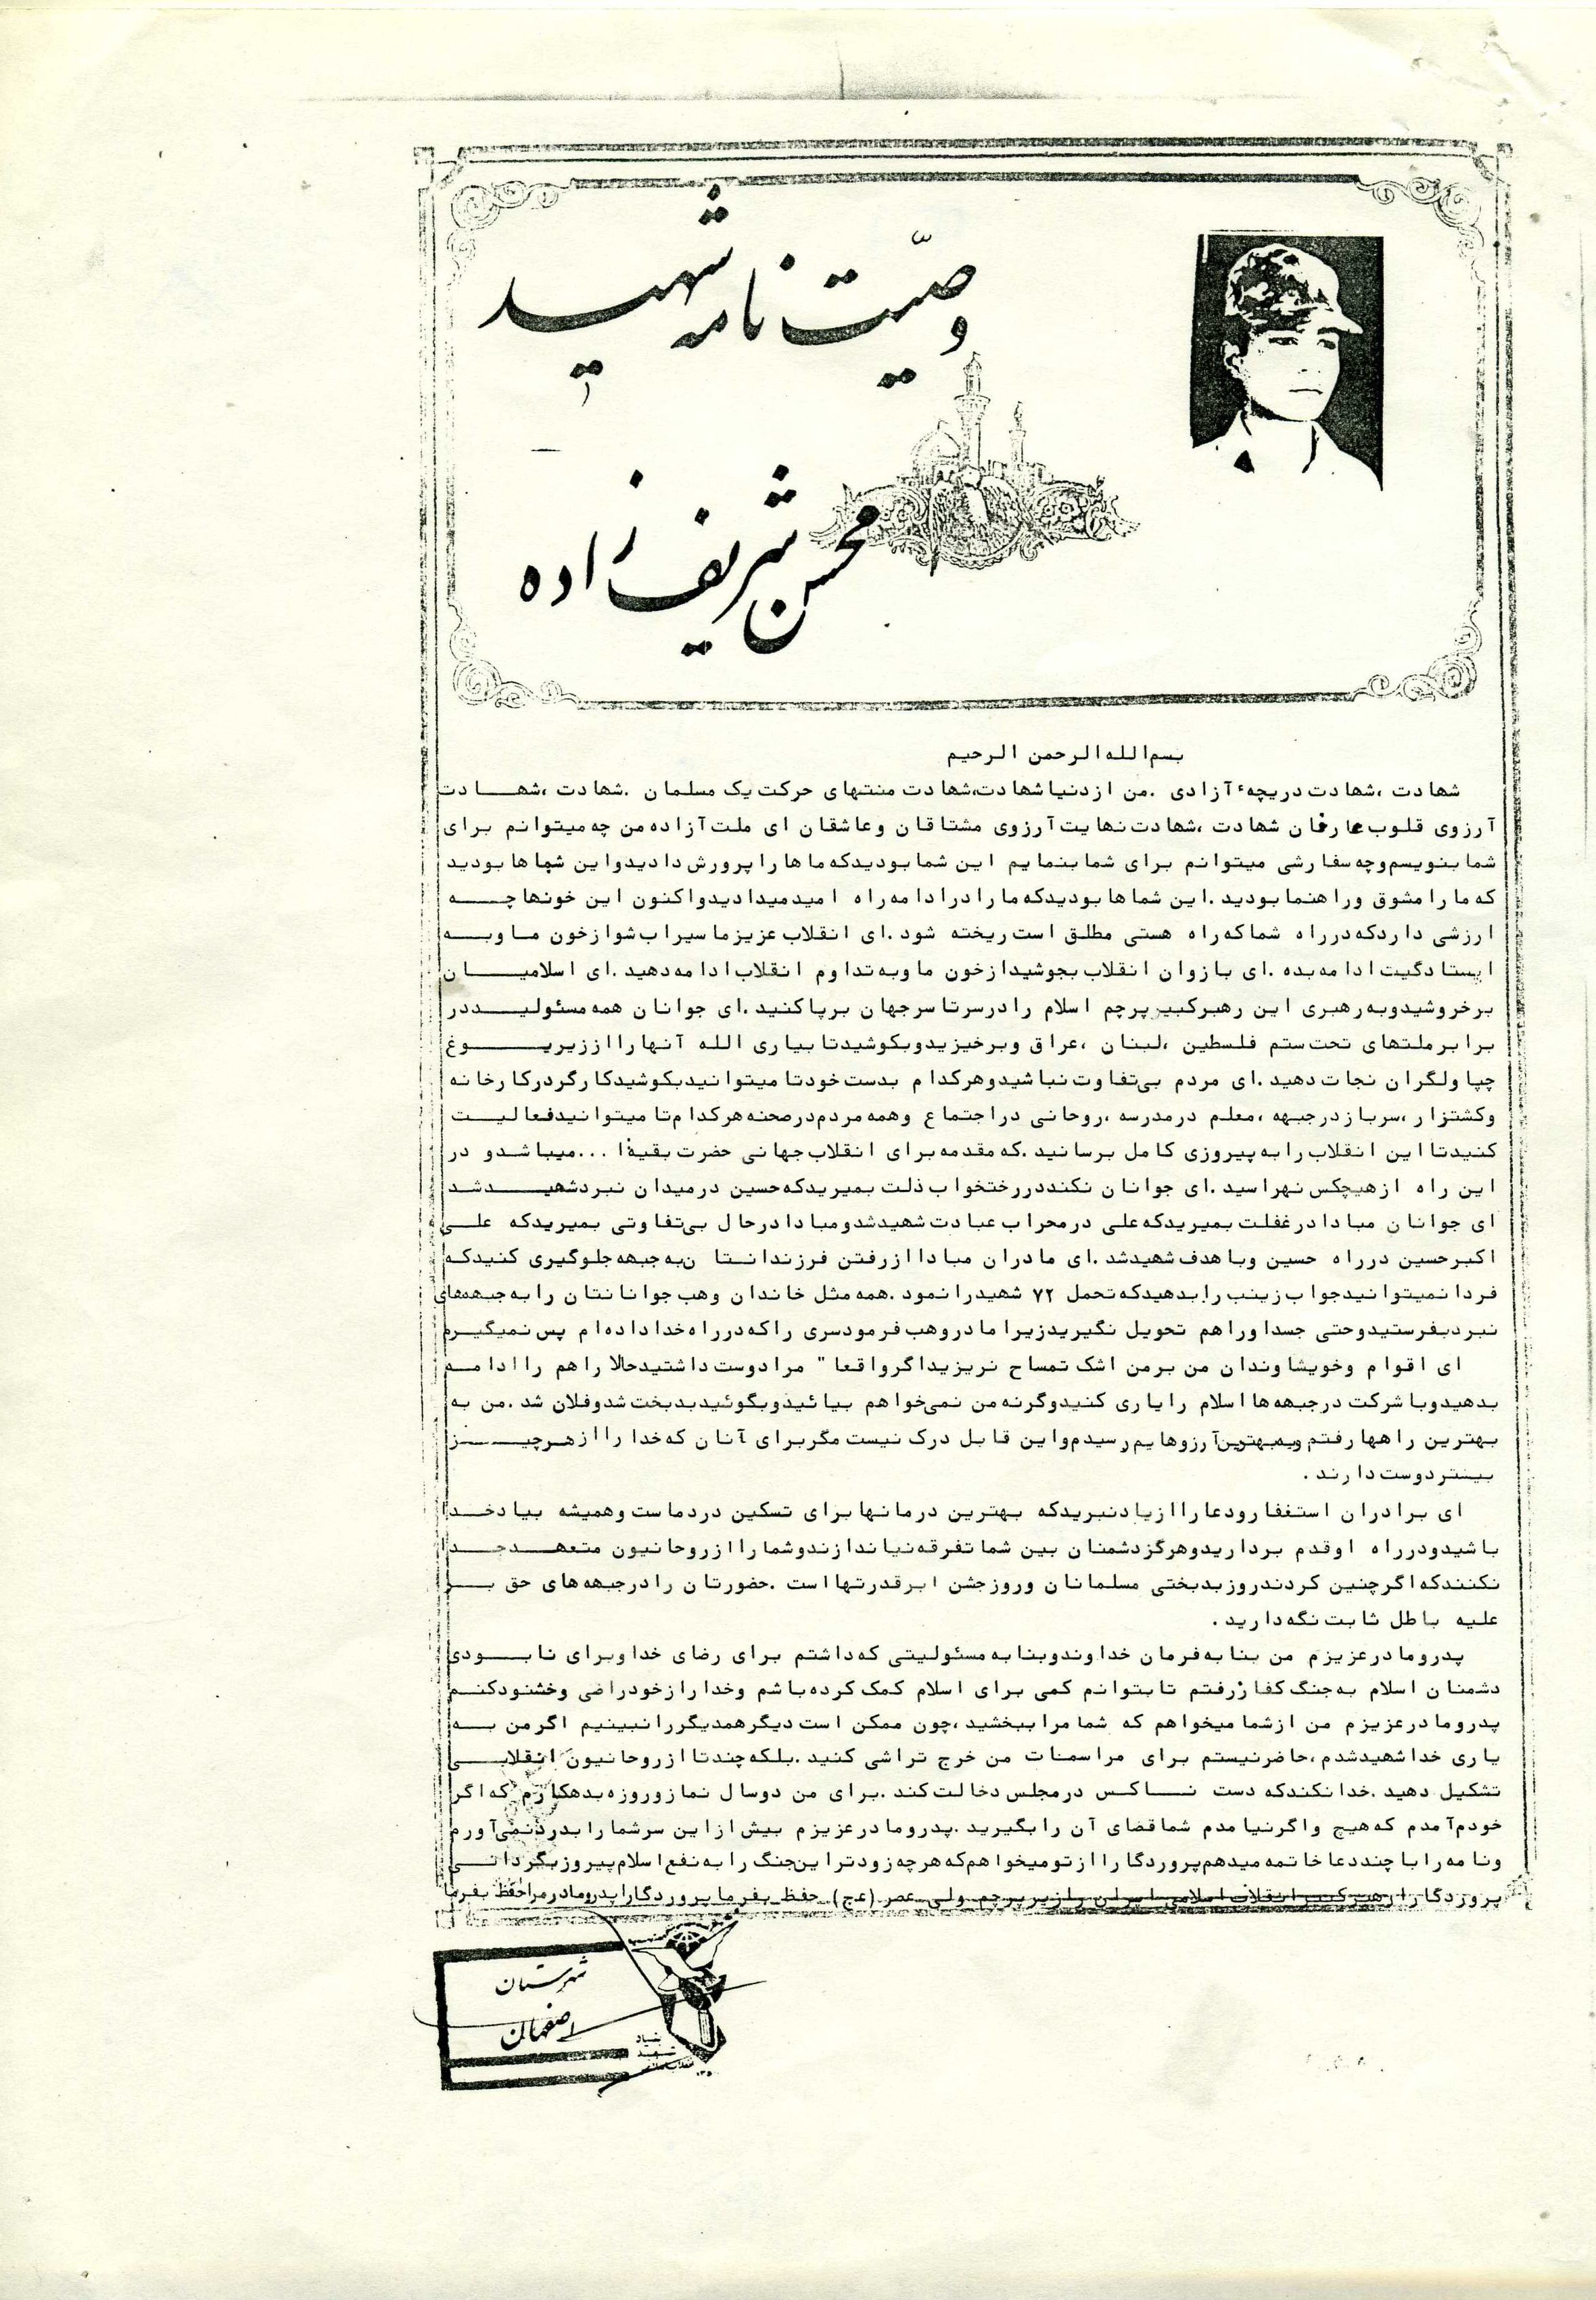 وصیّت نامه شهید
محسن شریف زاده
بسم الله الرحمن الرحیم
شهادت ،شهادت دریچهٔ آزادی .من ازدنیا شهادت،شهادت منتهای حرکت یک مسلمان .شهادت ،شهادت
آرزوی قلوب عارفان شهادت ،شهادت نهایت آرزوی مشتاقان وعاشقان ای ملت آزاده من چه میتوانم برای
شما بنویسم وچه سفارشی میتوانم برای شما بنمایم این شما بودیدکه ماها را پرورش دادیدواین شماها بودید
که ما را مشوق وراهنما بودید .این شماها بودیدکه ما را درادامه راه امید میدادیدواکنون این خونها چه
ارزشی داردکه درراه شما که راه هستی مطلق است ریخته شود .ای انقلاب عزیز ما سیراب شوازخون ما وبه
ایستادگیت ادامه بده .ای بازوان انقلاب بجوشیدازخون ما وبه تداوم انقلاب ادامه دهید .ای اسلامیان
برخروشیدوبه رهبری این رهبرکبیر پرچم اسلام را درسرتاسرجهان برپاکنید .ای جوانان همه مسئولیددر
برابرملتهای تحت ستم فلسطین ،لبنان ،عراق وبرخیزیدوبکوشیدتا بیاری الله آنها را اززیریوغ
چپاولگران نجات دهید .ای مردم بی‌تفاوت نباشیدوهرکدام بدست خودتا میتوانیدبکوشیدکارگردرکارخانه
وکشتزار ،سربازدرجبهه ،معلم درمدرسه ،روحانی دراجتماع وهمه مردم درصحنه هرکدام تا میتوانیدفعالیت
کنیدتا این انقلاب را به پیروزی کامل برسانید .که مقدمه برای انقلاب جهانی حضرت بقیةا ...میباشدو در
این راه ازهیچکس نهراسید .ای جوانان نکنددررختخواب ذلت بمیریدکه حسین درمیدان نبردشهیدشد
ای جوانان مبادا درغفلت بمیریدکه علی درمحراب عبادت شهیدشدومبادا درحال بی‌تفاوتی بمیریدکه علی
اکبرحسین درراه حسین وبا هدف شهیدشد .ای مادران مبادا ازرفتن فرزندانتان به جبهه جلوگیری کنیدکه
فردا نمیتوانیدجواب زینب را بدهیدکه تحمل ۷۲ شهیدرا نمود .همه مثل خاندان وهب جوانانتان را به جبهه‌های
نبردبفرستیدوحتی جسداوراهم تحویل نگیریدزیرا مادروهب فرمودسری را که درراه خدا داده‌ام پس نمیگیرم
ای اقوام وخویشاوندان من برمن اشک تمساح نریزیداگرواقعا" مرا دوست داشتیدحالا راهم را ادامه
بدهیدوبا شرکت درجبهه‌ها اسلام را یاری کنیدوگرنه من نمی‌خواهم بیائیدوبگوئیدبدبخت شدوفلان شد .من به
بهترین راهها رفتم وبه بهترین آرزوهایم رسیدم واین قابل درک نیست مگربرای آنان که خدا را ازهرچیز
بیشتردوست دارند .
ای برادران استغفارودعا را ازیادنبریدکه بهترین درمانها برای تسکین دردماست وهمیشه بیادخدا
باشیدودرراه اوقدم برداریدوهرگزدشمنان بین شما تفرقه نیاندازندوشما را ازروحانیون متعهدجدا
نکنندکه اگرچنین کردندروزبدبختی مسلمانان وروزجشن ابرقدرتها است .حضورتان را درجبهه‌های حق بر
علیه باطل ثابت نگه دارید .
پدرومادرعزیزم من بنا به فرمان خداوندوبنا به مسئولیتی که داشتم برای رضای خدا وبرای نابودی
دشمنان اسلام به جنگ کفاررفتم تا بتوانم کمی برای اسلام کمک کرده باشم وخدا را ازخودراضی وخشنودکنم
پدرومادرعزیزم من ازشما میخواهم که شما مرا ببخشید ،چون ممکن است دیگرهمدیگررا نبینیم اگرمن به
یاری خدا شهیدشدم ،حاضرنیستم برای مراسمات من خرج تراشی کنید .بلکه چندتا ازروحانیون انقلابی
تشکیل دهید .خدا نکندکه دست ناکس درمجلس دخالت کند .برای من دوسال نمازوروزه بدهکارم که اگر
خودم آمدم که هیچ واگرنیامدم شما قضای آن را بگیرید .پدرومادرعزیزم بیش ازاین سرشما را بدردنمی‌آورم
ونامه را با چنددعا خاتمه میدهم پروردگارا ازتومیخواهم که هرچه زودتراین جنگ را به نفع اسلام پیروزبگردانی
پروردگارا رهبرکبیرانقلاب اسلامی ایران را زیرپرچم ولی عصر (عج) حفظ بفرما پروردگارا پدرومادرمرا حفظ بفرما
شهرستان
اصفهان
بنیاد
شهید